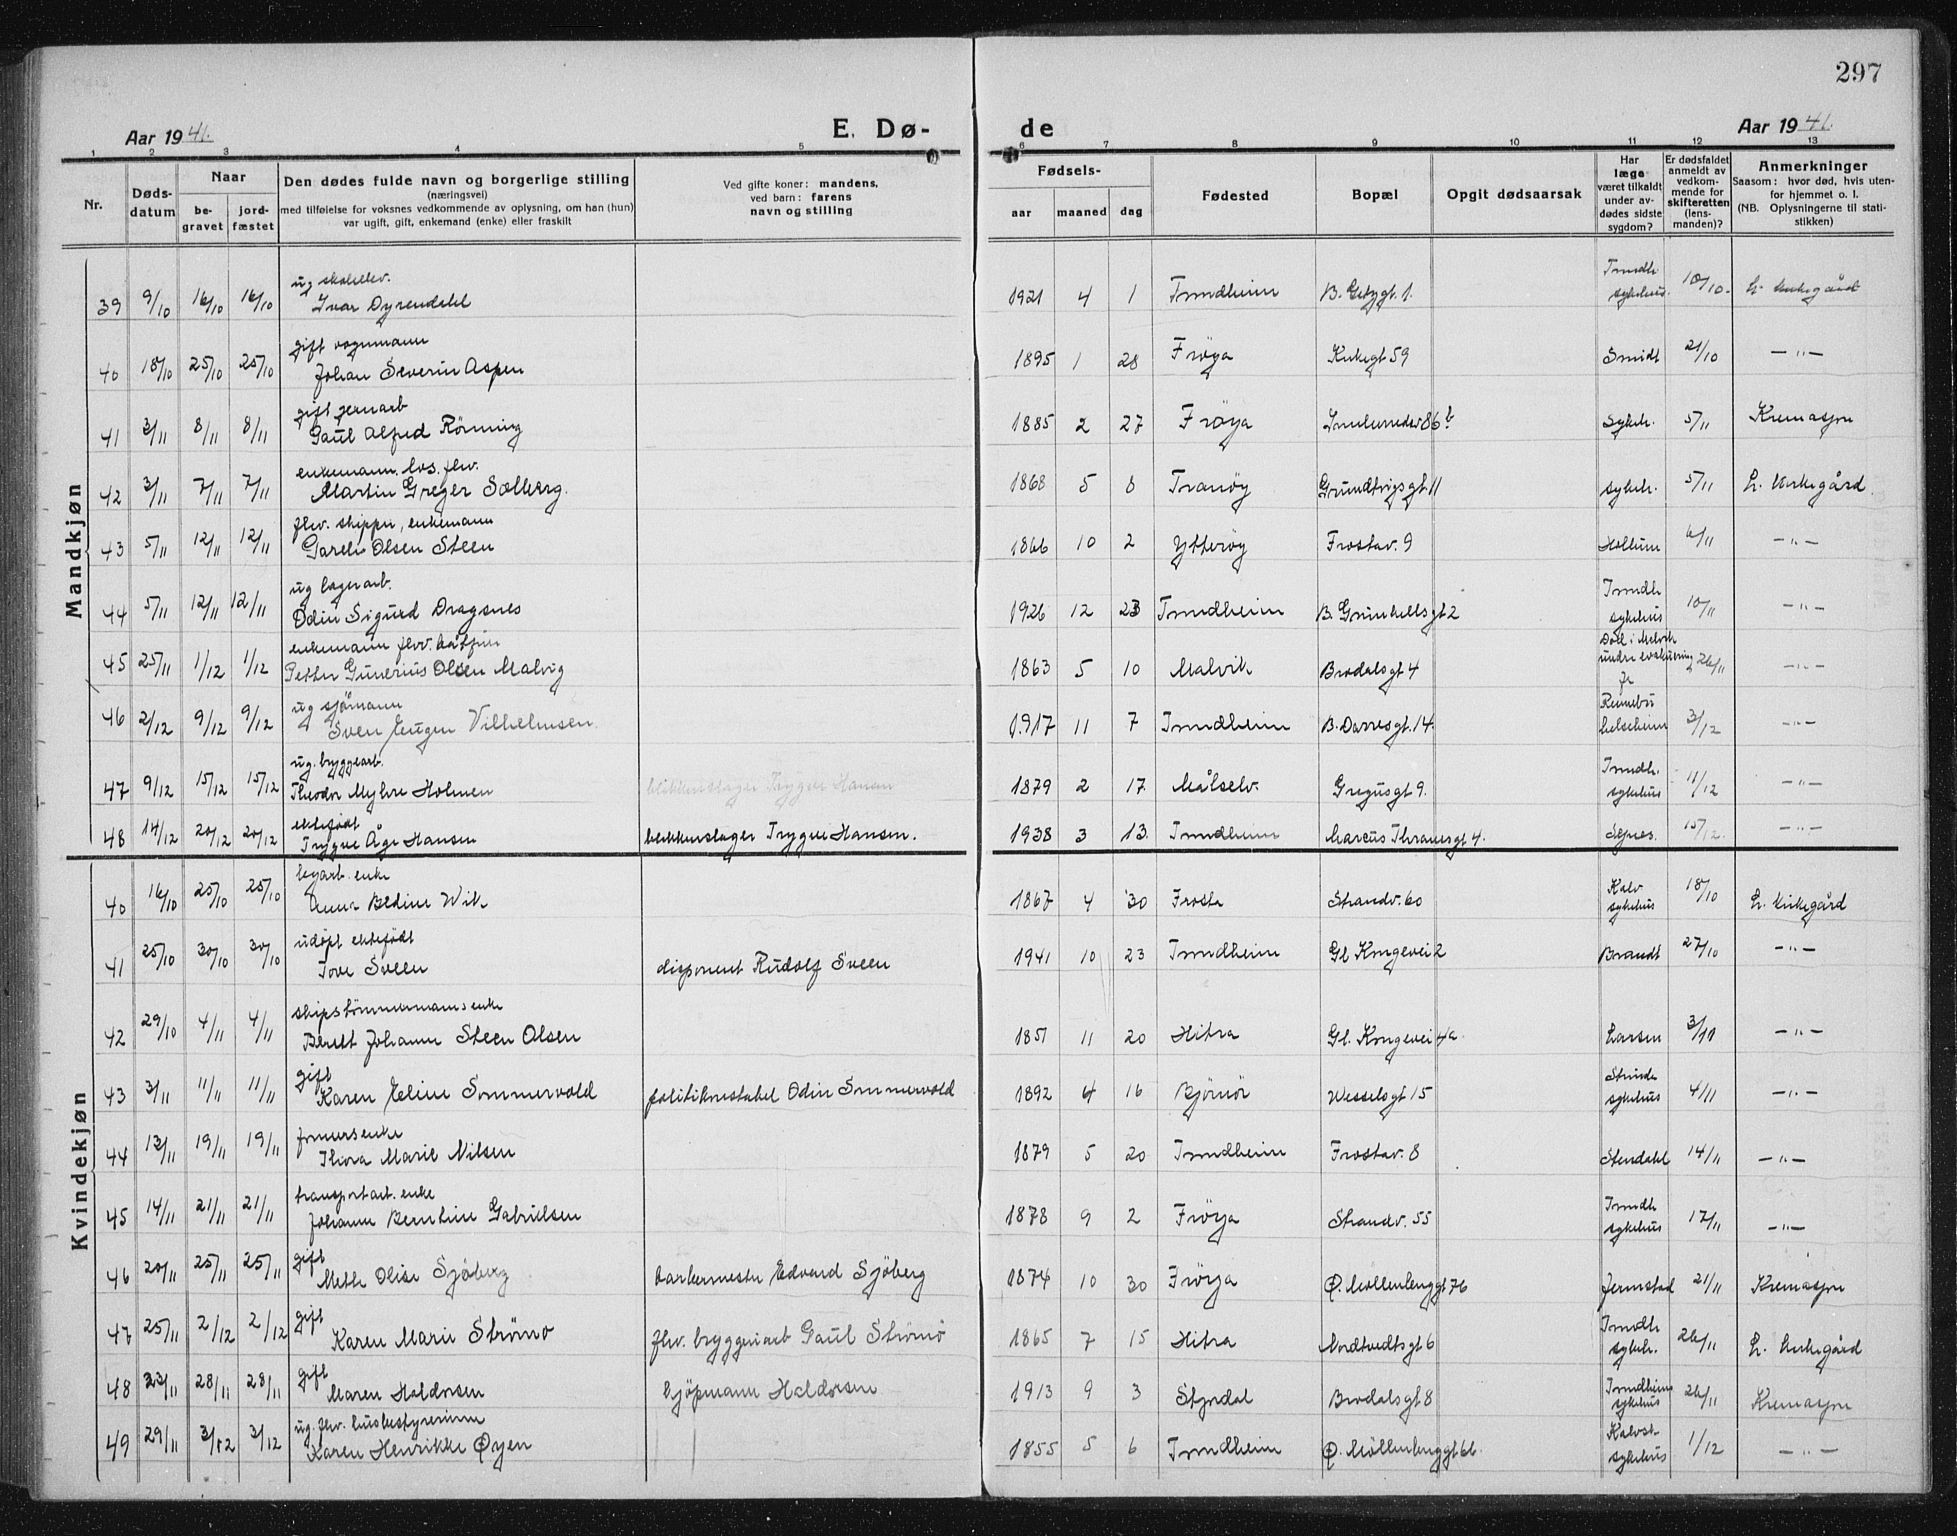 297
Aar 1941.
E. Dø-
de
Aar 1941.
1 2 3 4 5 6 7 8 9 10 11 12 13
Nr.
Døds-
datum
Naar
be-
gravet
jord-
fæstet
Den dødes fulde navn og borgerlige stilling
(næringsvei)
med tilføielse for voksnes vedkommende av oplysning, om han (hun)
var ugift, gift, enkemand (enke) eller fraskilt
Ved gifte koner: mandens,
ved barn: farens
navn og stilling
Fødsels-
aar maaned dag
Fødested
Bopæl
Opgit dødsaarsak
Har
læge
været tilkaldt
under av-
dødes sidste
sygdom?
Er dødsfaldet
anmeldt av
vedkom-
mende for
skifteretten
(lens-
manden)?
Anmerkninger
Saasom: hvor død, hvis uten-
for hjemmet o. l.
(NB. Oplysningerne til stati-
stikken)
Mandkjøn
ug skoleelev.
39 9/10 16/10 16/10 Ivar Dyrendahl 1921 4 1 Trondheim Trondh. sykehus 10/10
gift vognmann
40 18/10 25/10 25/10 Johan Severin Aspen 1895 1 28 Frøya Kirkegt 59 Smidt 21/10 —"—
gift jernarb
41 3/11 8/11 8/11 Paul Alfred Rönning 1885 2 27 Frøya sykeh. 5/11 Kremasjon
enkemann. los. flv.
42 3/11 7/11 7/11 Martin Greger Solberg. 1868 5 8 Tranöy Grundtvigsgt. 11 sykeh. 5/11 L. Kirkegård.
flv. skipper, enkemann
43 5/11 12/11 12/11 Olsen Steen 1866 10 2 Ytterøy Frostav. 9 6/11 —"—
ug lagerarb.
44 5/11 12/11 12/11 Odin Sigurd Dragsnes 1926 12 23 Trondheim B. Grimkellsgt 2 Trondh sykehus 10/11 —"—
enkemann flv.
45 25/11 1/12 1/12 Petter Gunerius Olsen Malvig 1863 5 10 Malvik Brodalsgt 4 Död i Malvik under evakuering 26/11 —"—
ug sjømann
46 2/12 9/12 9/12 Sven Eugen Vilhelmsen. 1917 11 7 Trondheim B. Darresgt. 14. Rennebu helseheim 3/12 —"—
ug. bryggearb.
47 9/12 15/12 15/12 Theodor Myhre Holmen blikkenslager Trygve Hansen 1879 2 17 Målselv. Gregusgt 9. Trondh. sykehus 11/12 —"—
ektefødt
48 14/12 20/12 20/12 Trygve Åge Hansen blikkenslager Trygve Hansen. 1938 3 13. Trondheim Marcus Thranesgt 4. 15/12. —"—
Kvindekjøn
enke
40 16/10 25/10 25/10 Anna Bedine Wik 1867 4 30 Frosta Strandv. 60 sykehus 18/10 L. Kirkegård
udöpt ektefödt
41 25/10 30/10 30/10 Tove Sveen disponent Rudolf Sveen 1941 10 23 Trondheim Gl Kongevei 2 Brandt 27/10 —"—
skipstömmermanns enke
42 29/10 4/11 4/11 Berett Johanne Steen Olsen 1851 11 20 Hitra Gl. Kongevei 4a Larsen —"—
gift
43 3/11 11/11 11/11 Karen Eline Sommervold politikonstabel Odin Sommervold 1892 4 16 Bjørnör Wesselsgt 15 Strinda sykehus 4/11 —"—
formers enke
44 13/11 19/11 19/11 Thora Marie Nilsen 1879 5 20 Trondheim Frostav. 8 Stendahl 14/11 —"—
transportarb. enke
45 14/11 21/11 21/11 Johanne Berntine Gabrielsen 1878 9 2 Frøya Strandv. 55 Trondh sykehus 17/11 —"—
gift
46 20/11 25/11 25/11 Mette Olise Sjöberg Edvard Sjöberg 1874 10 30 Frøya Ø. Möllenberggt 76 Jermstad 21/11 Kremasjon
gift
47 25/11 2/12 2/12 Karen Marie Strømø flv. bryggeriarb Paul Strømø 1865 7 15 Hitra Nordtvedtsgt 6 Trondh sykeh. 26/11 L. Kirkegård
gift
48 23/11 28/11 28/11 Maren Haldorsen kjöpmann Haldorsen 1913 9 3 Stjrdal Brodalsgt 8 Trondheims sykehus 26/11 Kremasjon
ug. flv. husbestyrerinne
49 29/11 3/12 3/12 Karen Henrikke Øyen 1855 5 6 Trondheim Ø. Möllenberggt 66. sykehus 1/12 —"—